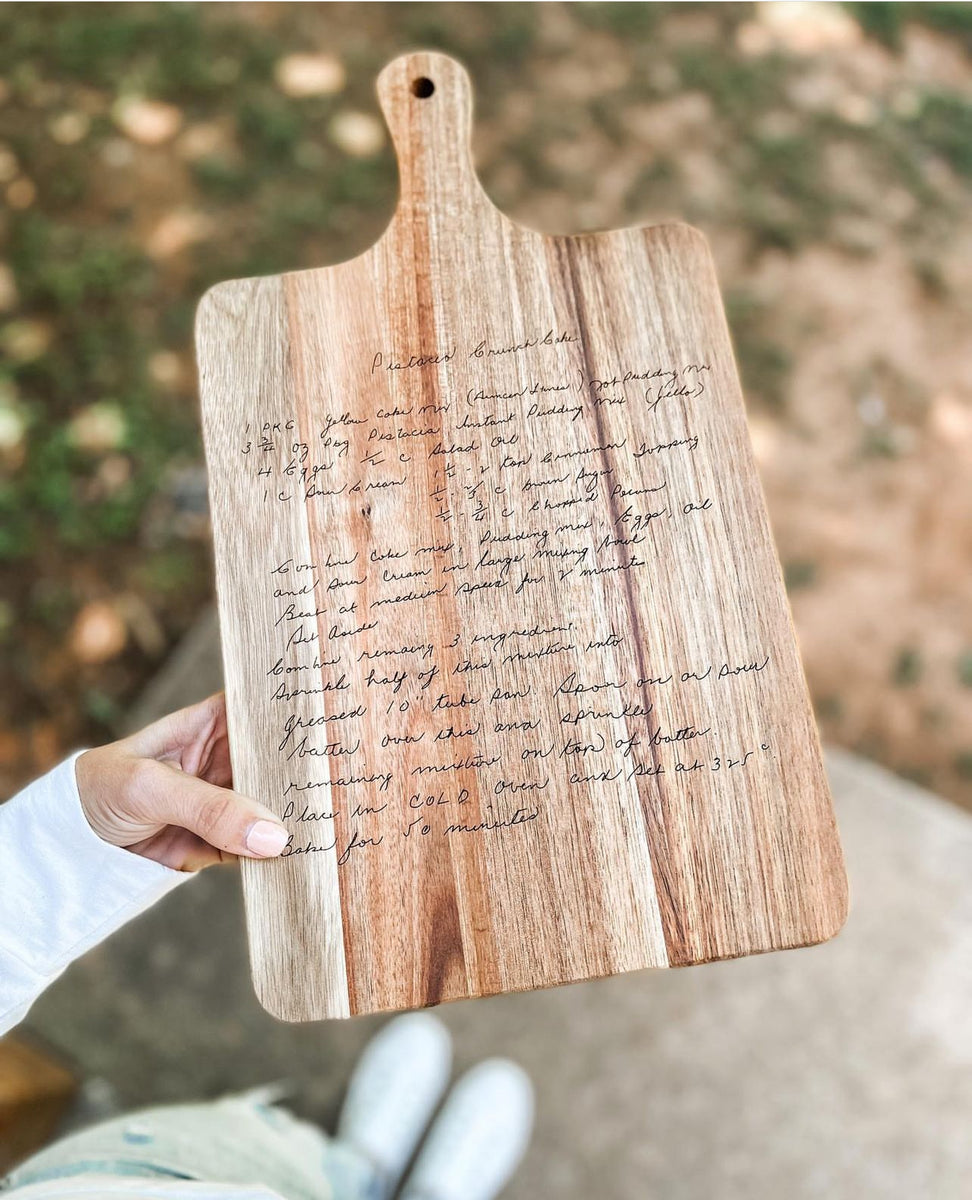 Pistacio Crunch Cake
1 PKG Yellow cake mix (Duncan Hines) not Pudding Mix
3 3/4 oz Pkg Pistacia Instant Pudding Mix (Jello)
4 Eggs 1/2 c Salad Oil
1 c Sour Cream 1 1/2 - 2 tsp Cinnemon
1/2 - 2/3 c Brown Sugar Topping
1/2 - 3/4 c Chopped Pecans
Combine Cake mix, Pudding mix, Eggs, Oil
and Sour Cream in large mixing bowl
Beat at medium speed for 2 minutes
Set Aside
Combine remaing 3 ingredients.
Sprinkle half of this mixture into
greased 10" tube pan. Spoon on or pour
batter over this and sprinkle
remaining mixture on top of batter.
Place in COLD oven and set at 325°.
Bake for 50 minutes